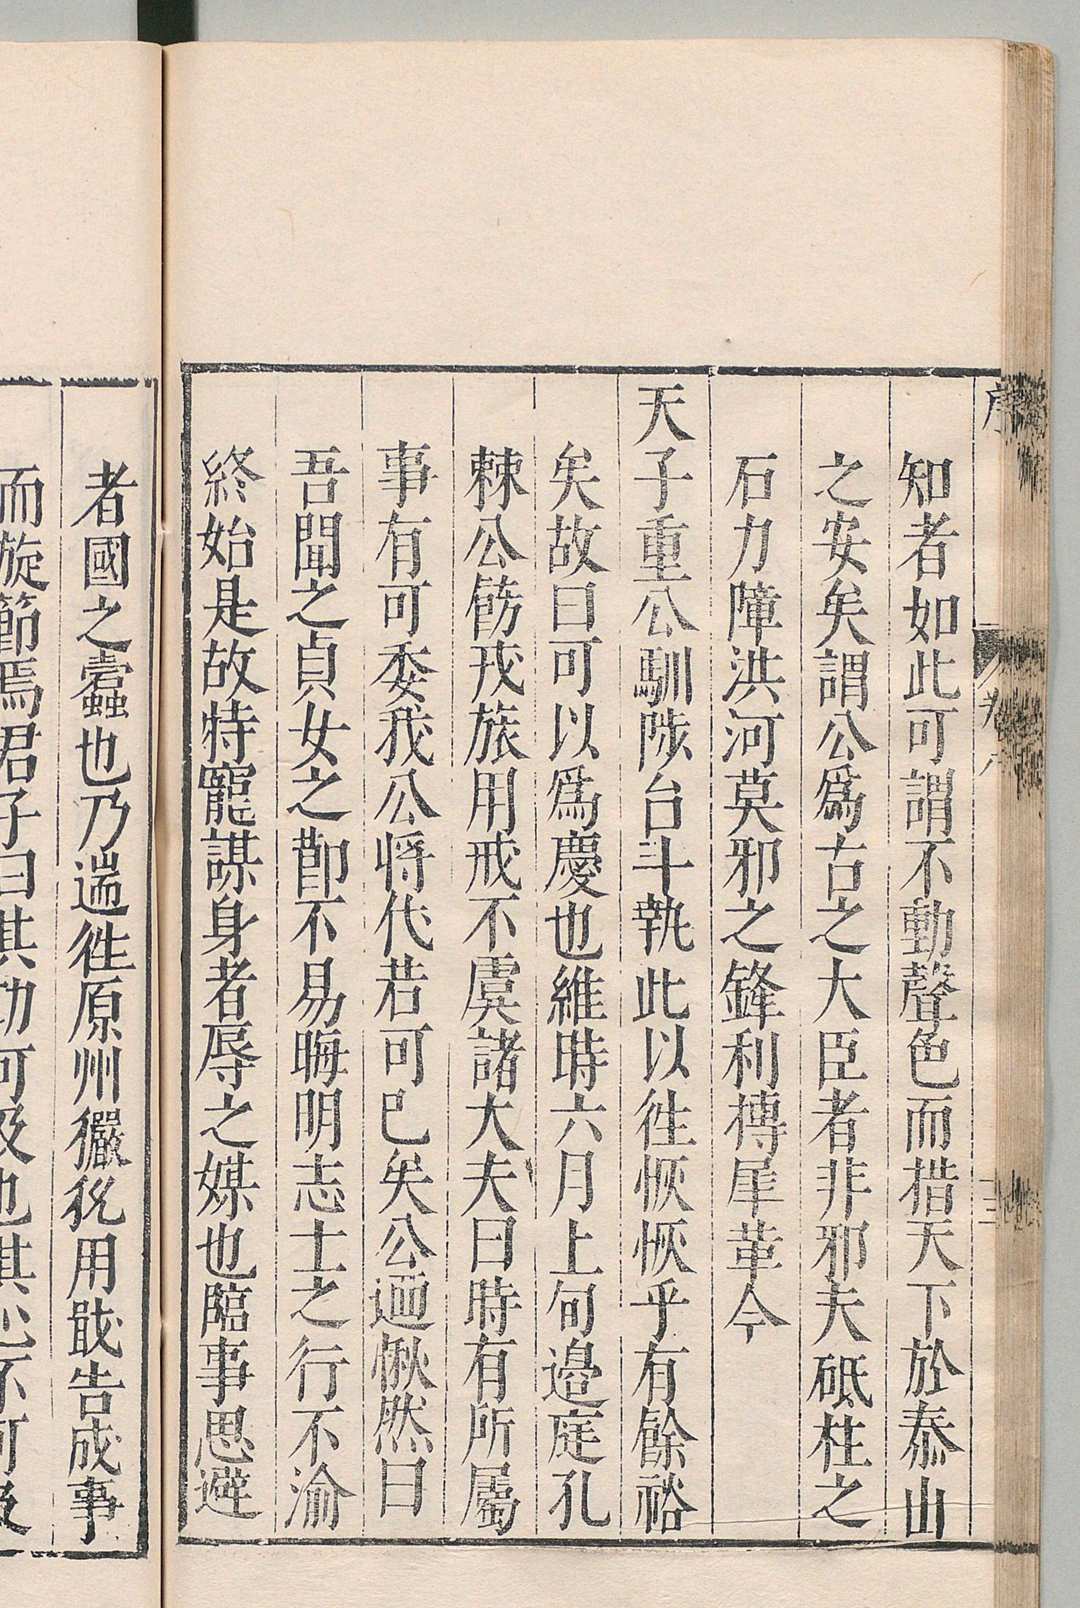 序
卷八
知者如此可謂不動聲色而措天下於泰山
之安矣謂公爲古之大臣者非邪夫砥柱之
石力障洪河莫邪之鋒利摶犀革今
天子重公馴陟台斗執此以徃恢恢乎有餘裕
矣故曰可以爲慶也維時六月上旬邉庭孔
棘公飭戎旅用戒不虞諸大夫曰時有所屬
事有可委我公將代若可已矣公逌愀然曰
吾聞之貞女之節不易晦明志士之行不渝
終始是故特寵謀身者辱之媒也臨事思避
者國之蠹也乃遄徃原州玁狁用戢告成事
而旋節焉君子曰其功可及也其心不可及